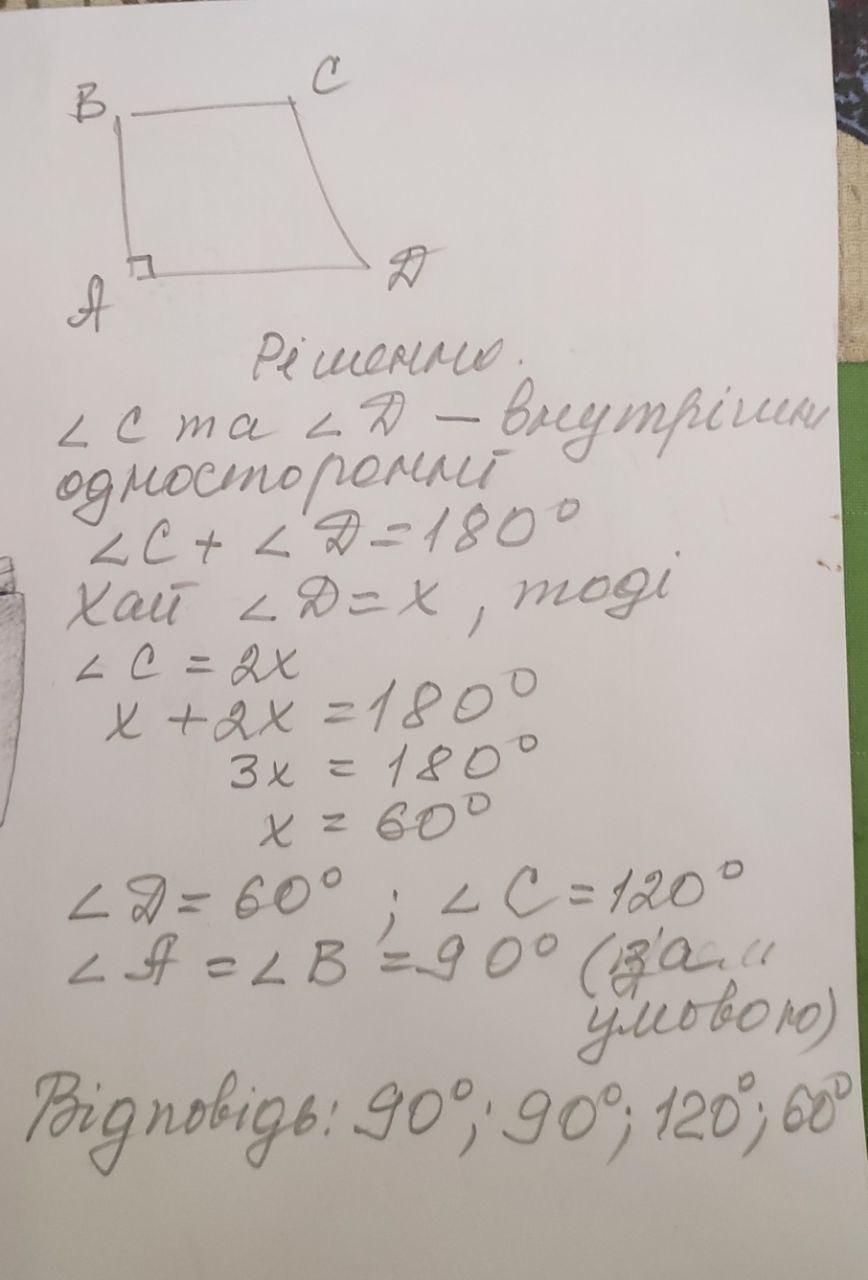 B
C
A
D
Рішення.
∠C та ∠D — внутрішні
односторонні
∠C + ∠D = 180°
Хай ∠D = x, тоді
∠C = 2x
x + 2x = 180°
3x = 180°
x = 60°
∠D = 60° ; ∠C = 120°
∠A = ∠B = 90° (за
умовою)
Відповідь: 90°; 90°; 120°; 60°